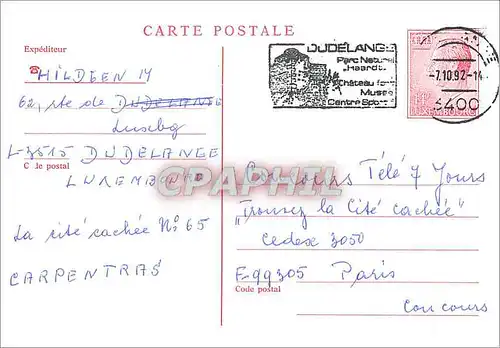 CARTE POSTALE
Expéditeur
HILDGEN M
62, rte de DUDELANGE
Luxbg
L-3515 DUDELANGE
Code postal
LUXEMBOURG
La cité cachée Nº 65
CARPENTRAS
DUDELANGE
Parc Naturel
"Haardt"
Château fort
Musée
Centre Sport
-7.10.92-14
3400
LUXEMBOURG
CPAPHIL
Concours Télé 7 Jours
"Trouvez la Cité cachée"
Cedex 3050
F-99305 Paris
Code postal
Concours